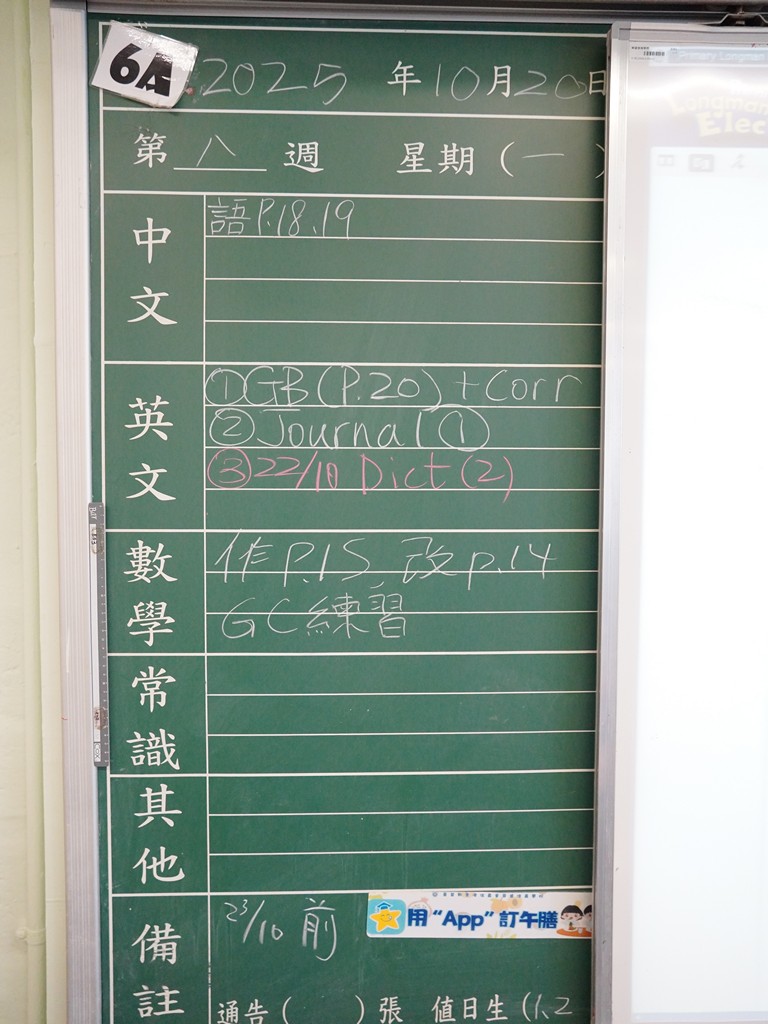 6A
2025 年10月20日
第 八 週 星期(一)
中文
語P.18、19
英文
①GB(P.20)+Corr
②Journal①
③22/10 Dict(2)
數學
作P.15、改p.14
GC練習
常識
其他
備註
23/10 前
用“App”訂午膳
通告( )張 值日生(1、2
Longman
Elec